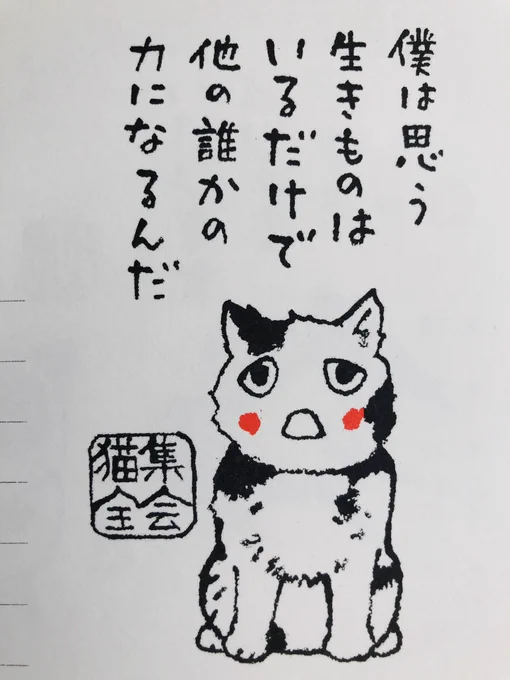 僕は思う
生きものは
いるだけで
他の誰かの
力になるんだ
全猫集会